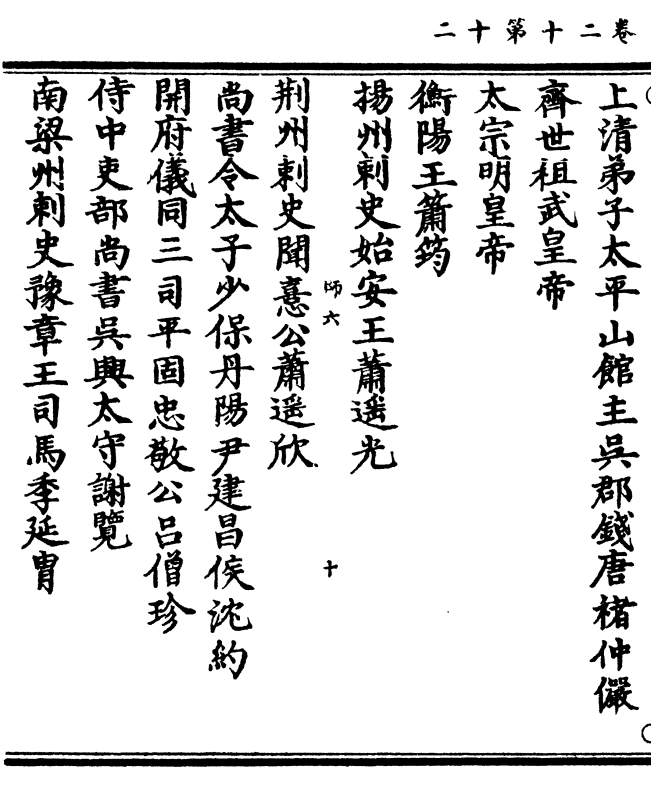 卷二十第十二
上清弟子太平山館主吳郡錢唐褚仲儼
齊世祖武皇帝
太宗明皇帝
衡陽王蕭筠
揚州剌史始安王蕭遥光
師六
十
荆州剌史聞憙公蕭遥欣
尚書令太子少保丹陽尹建昌侯沈約
開府儀同三司平固忠敬公吕僧珍
侍中吏部尚書吳興太守謝覽
南梁州剌史豫章王司馬季延胄